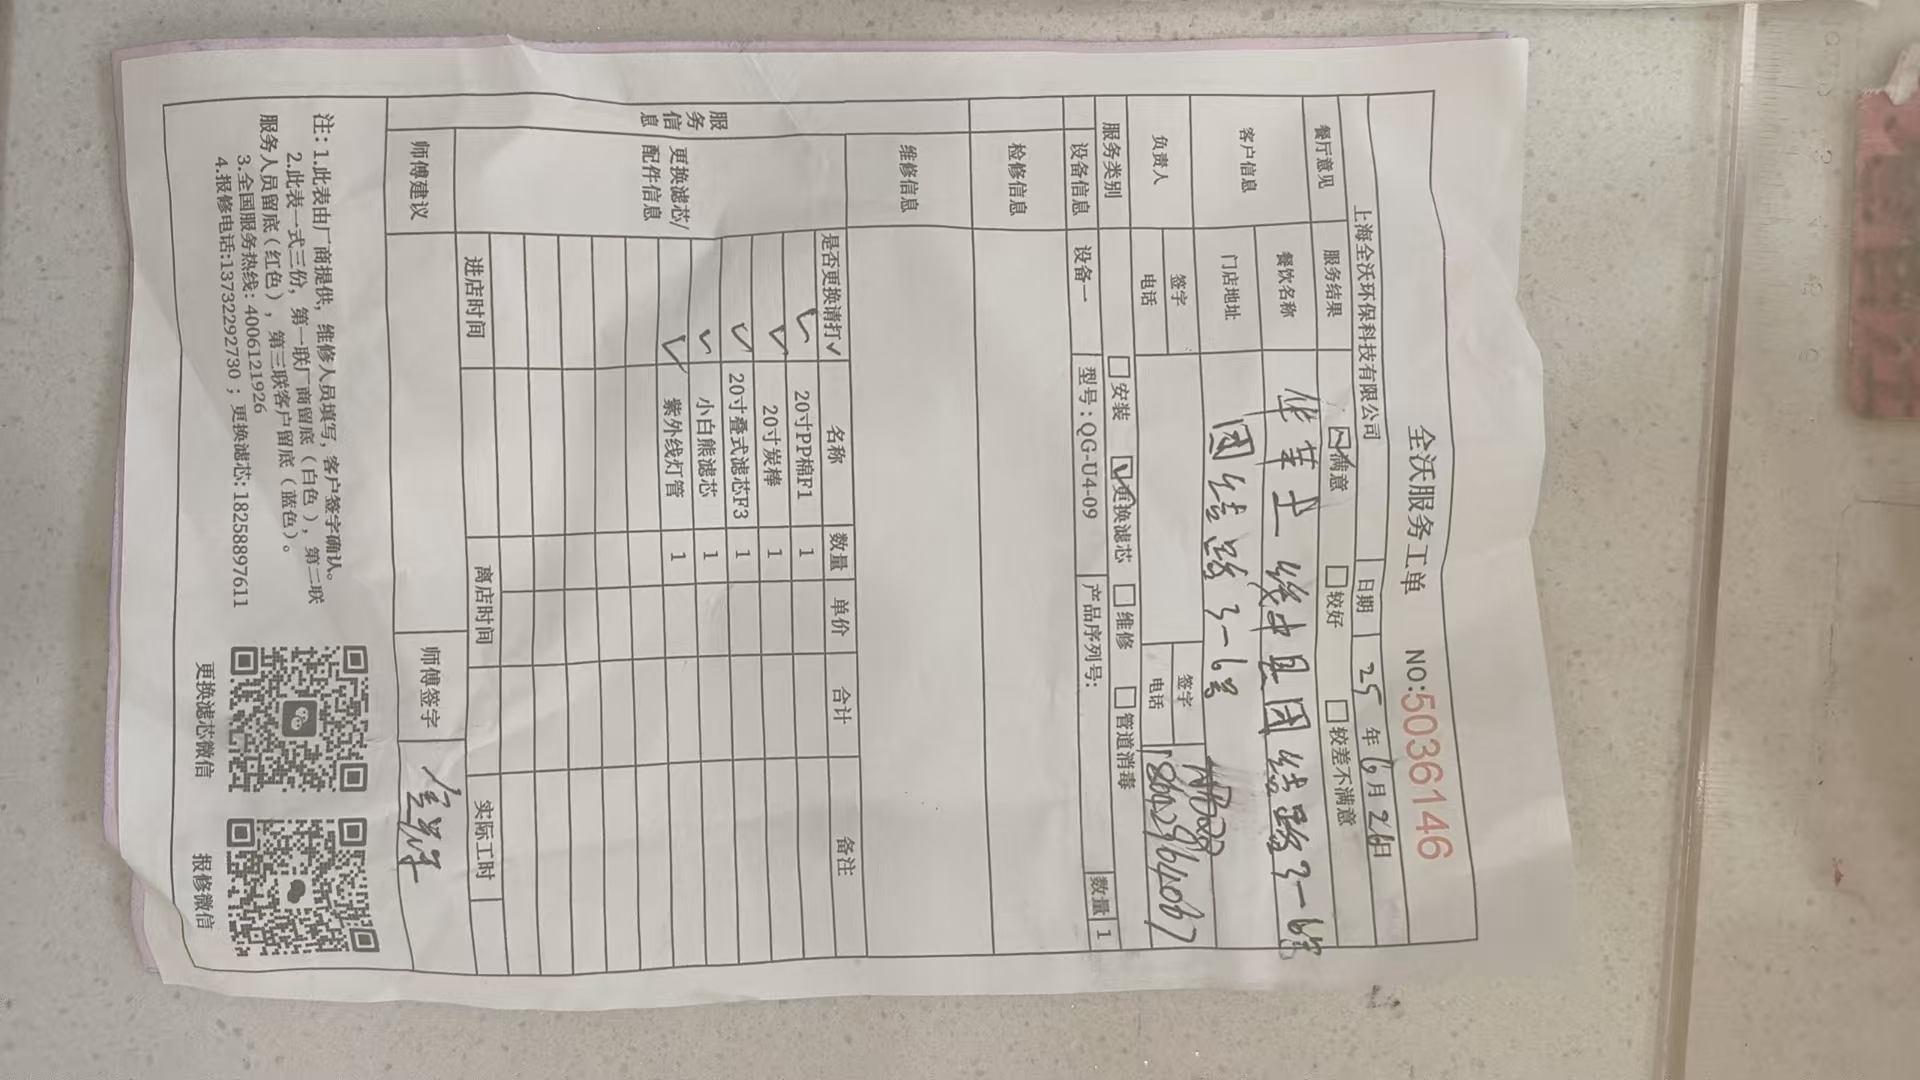 全沃服务工单 NO:5036146
上海全沃环保科技有限公司 日期 25年6月26日
餐厅意见 服务结果 满意 较好 较差不满意
客户信息 餐饮名称 华莱士 县团结路3-6号
门店地址 团结路3-6号
负责人 签字 签字
电话 电话
服务类别 安装 更换滤芯 维修 管道消毒
设备信息 设备一 型号:QG-U4-09 产品序列号: 数量 1
检修信息
维修信息
服务信息
更换滤芯/配件信息
是否更换请打✓ 名称 数量 单价 合计 备注
✓ 20寸PP棉F1 1
✓ 20寸炭棒 1
✓ 20寸叠式滤芯F3 1
✓ 小白熊滤芯 1
✓ 紫外线灯管 1
进店时间 离店时间 实际工时
师傅建议 师傅签字
注: 1.此表由厂商提供, 维修人员填写, 客户签字确认。
2.此表一式三份, 第一联厂商留底（白色）, 第二联
服务人员留底（红色）, 第三联客户留底（蓝色）。
3.全国服务热线: 4006121926
4.报修电话:13732292730 ; 更换滤芯: 18258897611
更换滤芯微信 报修微信